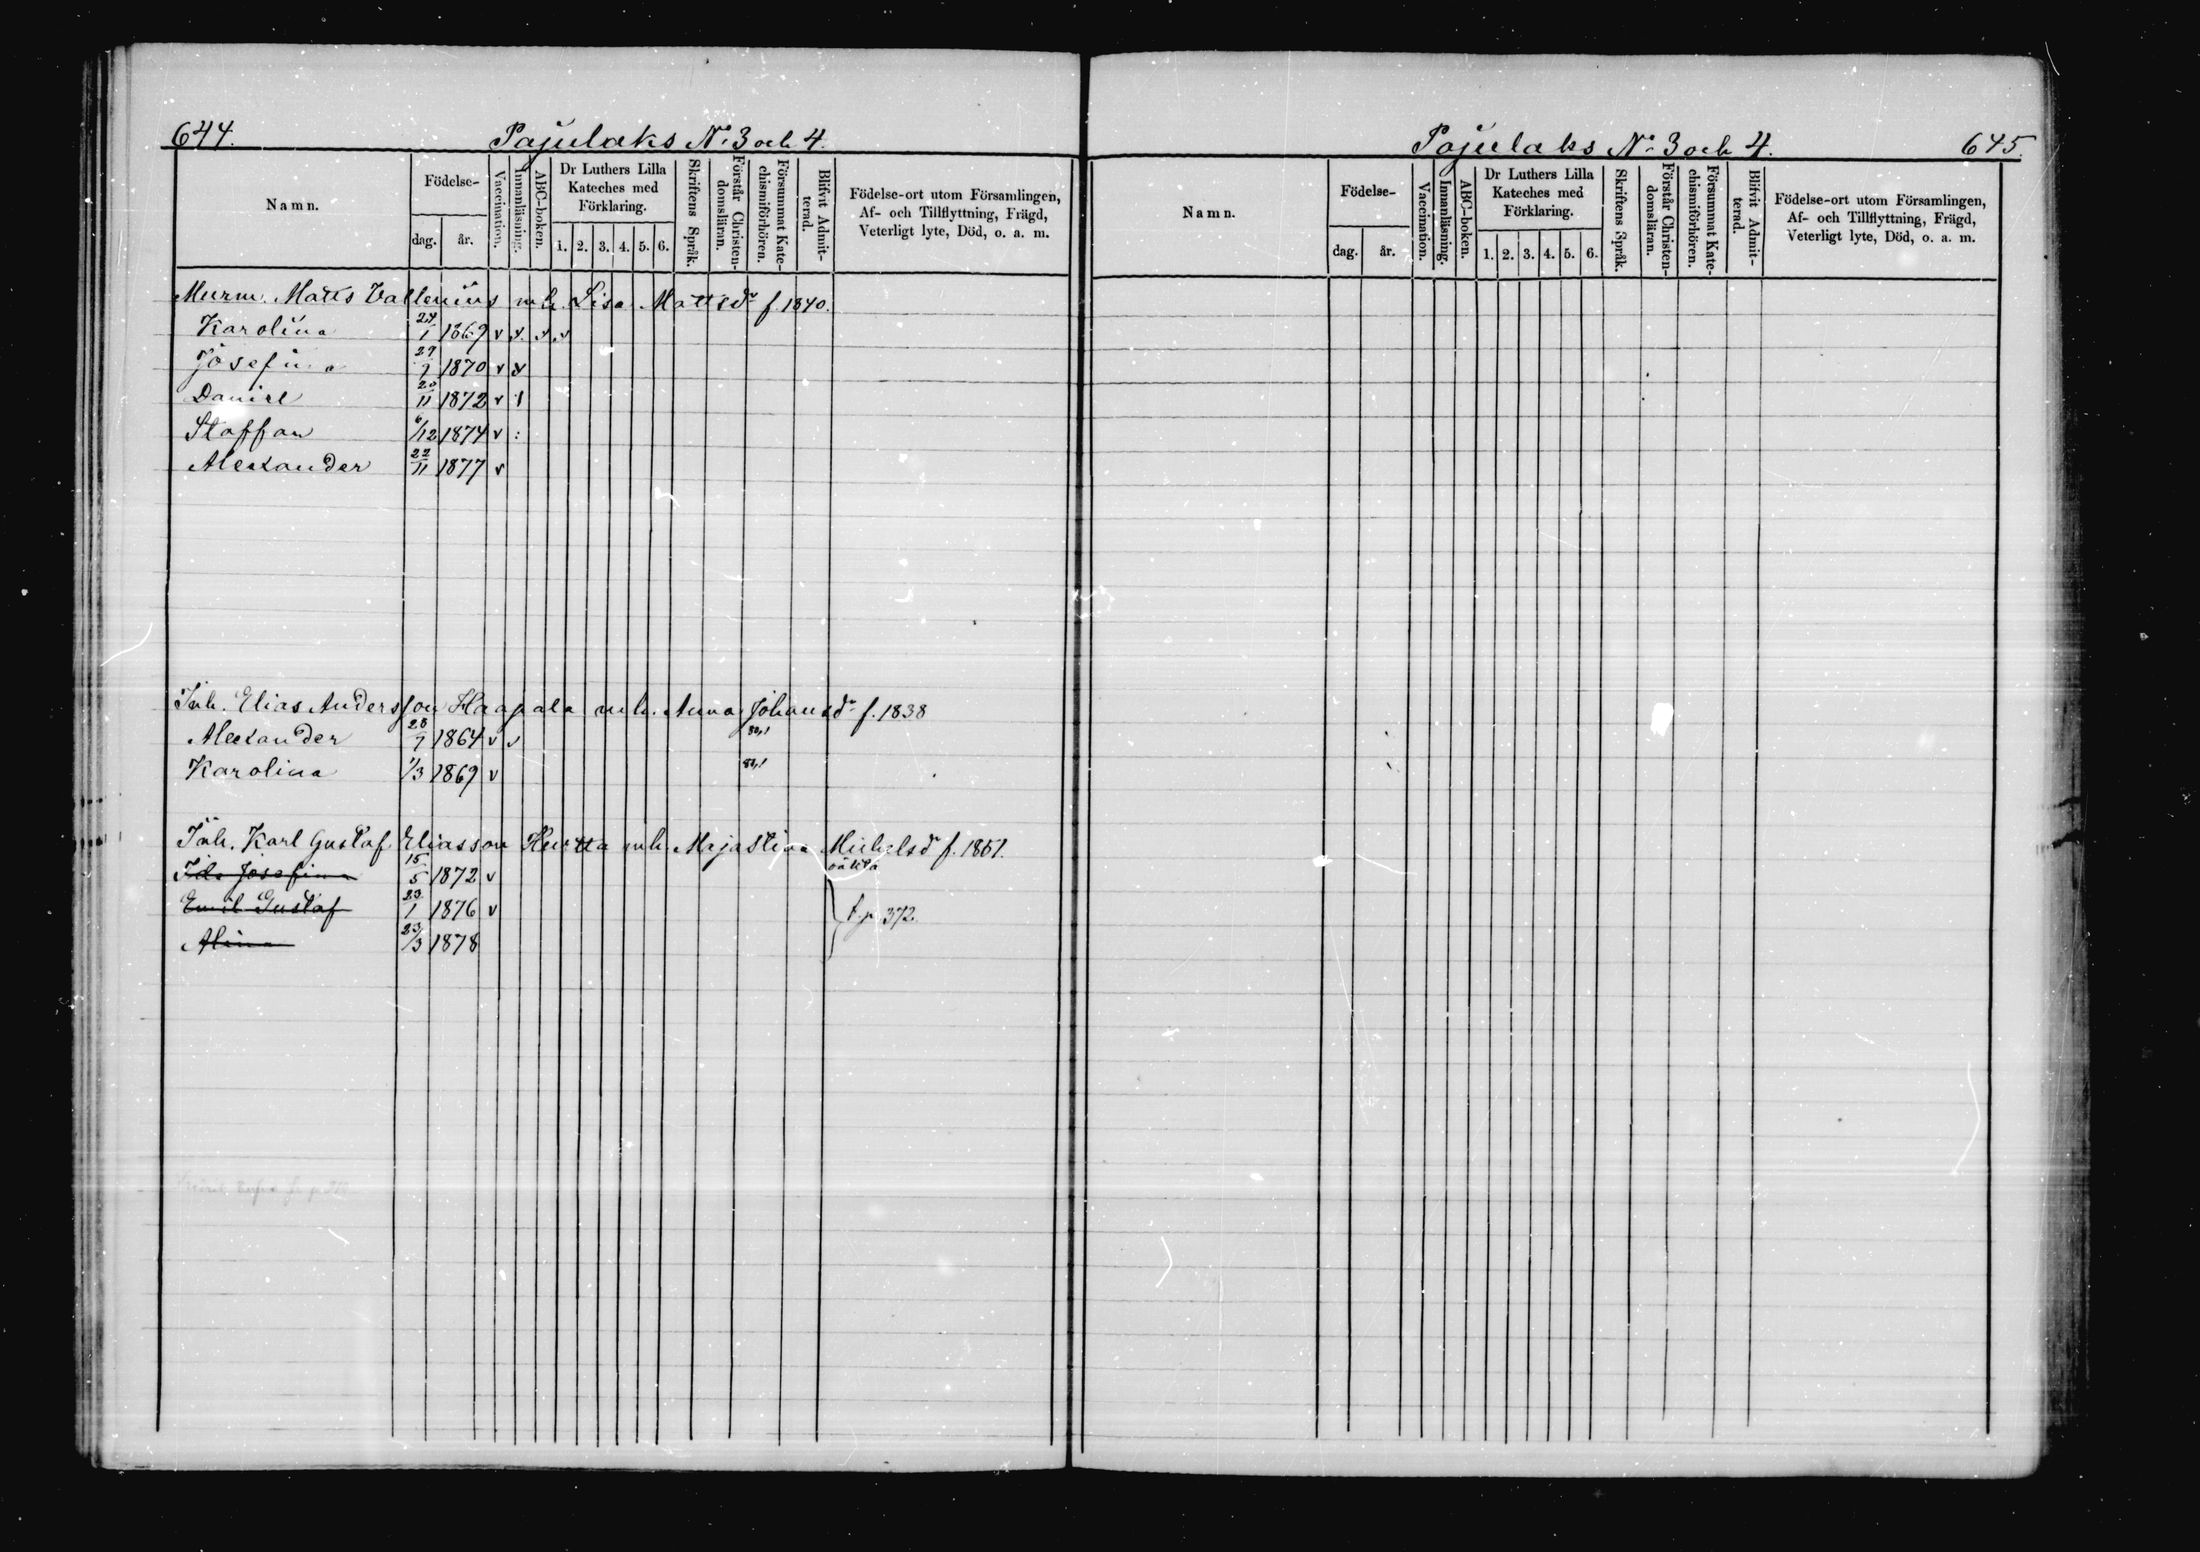 644. Pajulaks No 3 och 4.
Namn. Födelse- dag. år. Vaccination. Innanläsning. ABC-boken. Dr Luthers Lilla Kateches med Förklaring. 1. 2. 3. 4. 5. 6. Skriftens Språk. Förstår Christen-domsläran. Försummat Kate-chismiförhören. Blifvit Admit-terad. Födelse-ort utom Församlingen, Af- och Tillflyttning, Frägd, Veterligt lyte, Död, o. a. m.
Murm. Matts Vallenius m h. Lisa Mattsdr f 1840.
Karolina 24/1 1869 v x x x
Josefina 29/7 1870 v x
Daniel 20/11 1872 v 1
Staffan 6/12 1874 v :
Alexander 22/11 1877 v
Inh. Elias Andersson Haapala m h. Anna Johansdr f. 1838
Alexander 28/7 1864 v v 80,1
Karolina 1/3 1869 v 80,1
Inh. Karl Gustaf Eliasson Hurtta m h. Maja Stina Michelsdr f. 1851.
Ida Josefina 15/5 1872 v oäkta
Emil Gustaf 23/1 1876 v t. p. 372.
Alina 23/3 1878
Pajulaks No 3 och 4. 645.
Namn. Födelse- dag. år. Vaccination. Innanläsning. ABC-boken. Dr Luthers Lilla Kateches med Förklaring. 1. 2. 3. 4. 5. 6. Skriftens Språk. Förstår Christen-domsläran. Försummat Kate-chismiförhören. Blifvit Admit-terad. Födelse-ort utom Församlingen, Af- och Tillflyttning, Frägd, Veterligt lyte, Död, o. a. m.